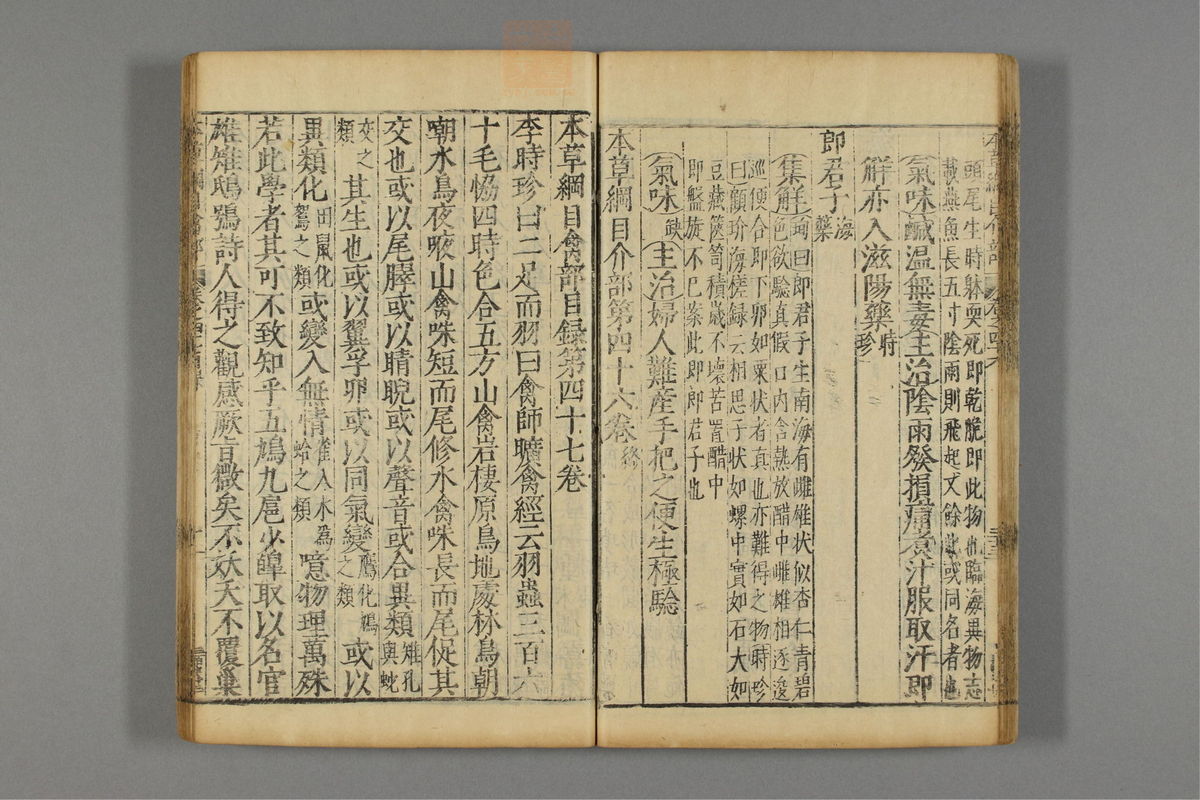 頭尾生時躰耎死即乾脆即此物也臨海異物志
載燕魚長五寸陰雨則飛起丈餘此或同名者也
氣味鹹温無毒主治陰雨發損痛煑汁服取汗即
觧亦入滋陽藥時珍
郎君子海藥
集觧珣曰郎君子生南海有雌雄状似杏仁青碧
色欲驗真假口内含熱放醋中雌雄相逐逡
巡便合即下卵如粟状者真也亦難得之物時珍
曰顧玠海槎録云相思子状如螺中實如石大如
豆藏篋笥積歲不壞若置醋中
即盤旋不已案此即郎君子也
氣味缺主治婦人難産手把之便生極驗
本草綱目介部第四十六卷終
本草綱目禽部目録第四十七卷
李時珍曰二足而羽曰禽師曠禽經云羽蟲三百六
十毛恊四時色合五方山禽岩棲原鳥地處林鳥朝
嘲水鳥夜㖡山禽咮短而尾修水禽咮長而尾促其
交也或以尾臎或以睛睨或以聲音或合異類雉孔與蛇
交之類其生也或以翼孚卵或以同氣變鷹化鳩之類或以
異類化田鼠化鴽之類或變入無情雀入水為蛤之類噫物理萬殊
若此學者其可不致知乎五鳩九扈少皥取以名官
雄雉鴟鴞詩人得之觀感厥旨微矣不妖夭不覆巢